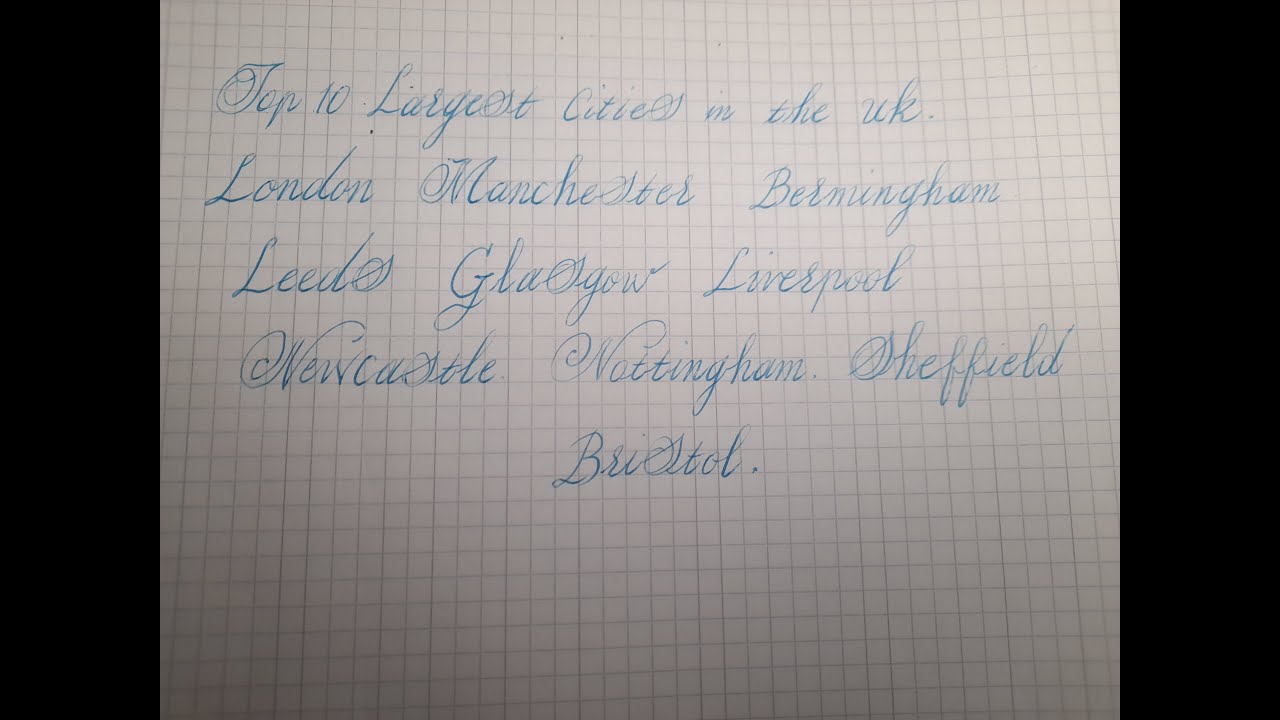 Top 10 Largest Cities in the uk.
London Manchester Bermingham
Leeds Glasgow Liverpool
Newcastle. Nottingham. Sheffield
Bristol.